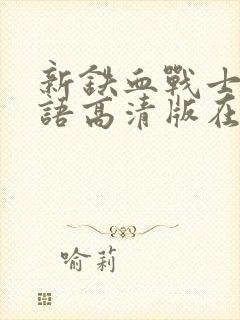 新鉄血戰士
語高清版在
喻莉